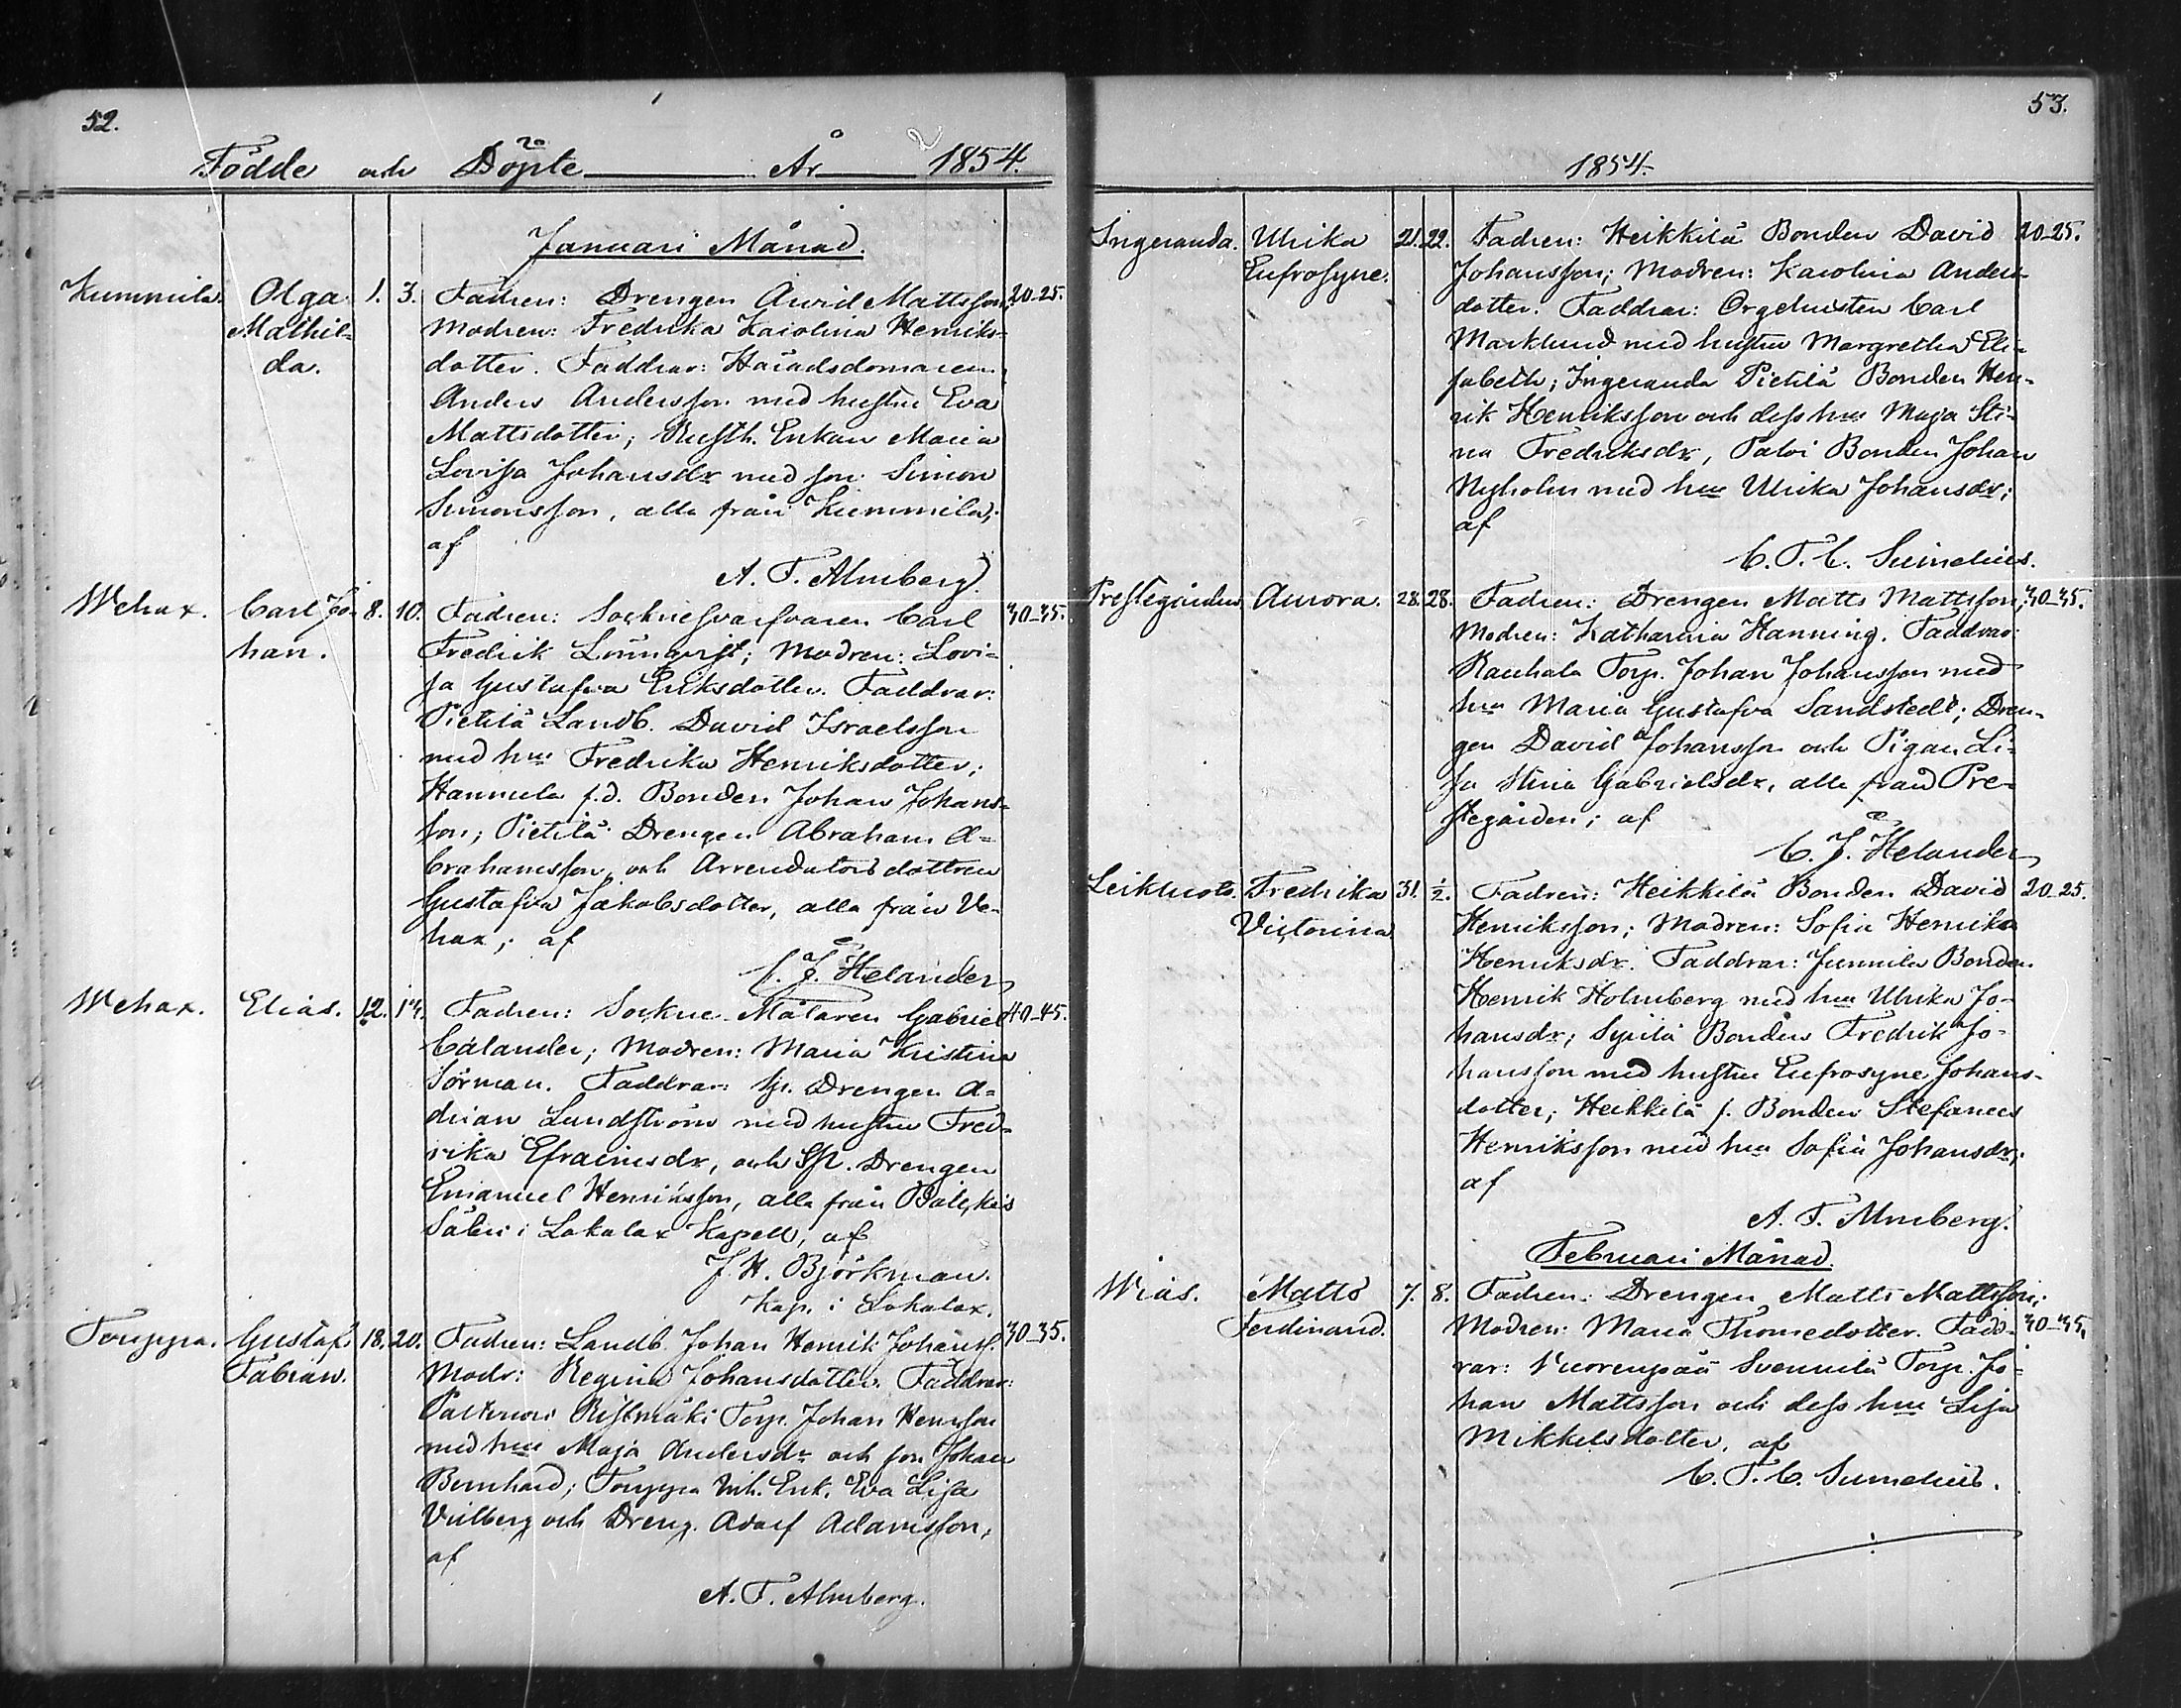 52.
Födde och Döpte År 1854.
Januari Månad.
Kummila. Olga 1. 3. Fadren: Drengen Arvid Mattsson; 20-25.
Mathil- Modren: Fredrika Karolina Henriks-
da. dotter. Faddrar: Häradsdomaren
Anders Andersson med hustru Eva
Mattsdotter; Rusth. Enkan Maria
Lovisa Johansdr med son Simon
Simonsson, alla från Kummila;
af
A. F. Almberg.
Wehax. Carl Jo- 8. 10. Fadren: Sockne Carl 30-35.
han. Fredrik Lönnqvist; Modren: Lovi-
sa Gustafva Eriksdotter. Faddrar:
Pietilä Landb. David Israelsson
med hu Fredrika Henriksdotter;
Hannula f.d. Bonden Johan Johans-
son; Pietilä Drengen Abraham A-
brahamsson och Arrendators dottren
Gustafva Jakobsdotter, alla från Ve-
hax; af
C. J. Helander
Wehax. Elias. 12. 14. Fadren: Sockne Målaren Gabriel 40-45.
Calander; Modren: Maria Kristina
Sörman. Faddrar: Sp. Drengen A-
drian Lundström med hustru Fred-
rika Efraimsdr, och Sp. Drengen
Emanuel Henriksson, alla från
Säteri i Lokalax Kapell, af
J. H. Björkman.
Kap. i Lokalax.
Touppa. Gustaf 18. 20. Fadren: Landb. Johan Henrik Johanss. 30-35.
Fabian. Modr: Regina Johansdotter. Faddrar:
Ristmäki Torp. Johan Henrsson
med hu Maja Andersdr och son Johan
Bernhard; Touppa Inh. Enk. Eva Lisa
Vilberg och Dreng. Adolf Adamsson,
af
A. F. Almberg.
53.
1854.
Ingeranda. Ulrika 21. 22. Fadren: Heikkilä Bonden David 20-25.
Eufrosyne. Johansson; Modren: Karolina Anders-
dotter. Faddrar: Orgelnisten Carl
Marklund med hustru Margretha Eli-
sabeth; Ingeranda Pietilä Bonden Hen-
rik Henriksson och dess hu Maja Sti-
na Fredriksdr, Palvi Bonden Johan
Nyholm med hu Ulrika Johansdr;
af
C. F. C. Sumelius.
Prestegården Aurora. 28. 28. Fadren: Drengen Matts Mattsson; 30-35.
Modren: Katharina Hanning. Faddrar:
Rauhala Torp. Johan Johansson med
hu Maria Gustafva Sandstedt; Dren-
gen David Johansson och Pigan Li-
sa Stina Gabrielsdr, alla från Pre-
stegården; af
C. J. Helander
Leikluoto. Fredrika 31. ½. Fadren: Heikkilä Bonden David 20-25.
Victorina. Henriksson; Modren: Sofia Henrika
Henriksdr. Faddrar: Junnila Bonden
Henrik Holmberg med hu Ulrika Jo-
hansdr; Syrilä Bonden Fredrik Jo-
hansson med hustru Eufrosyne Johans-
dotter; Heikkilä f. Bonden Stefanus
Henriksson med hu Sofia Johansdr;
af
A. F. Almberg.
Februari Månad.
Wiás. Matts 7. 8. Fadren: Drengen Matts Mattsson;
Ferdinand. Modren: Maria Thomedotter. Fadd- 30-35.
rar: Vuorenpää Svennilä Torp. Jo-
han Mattsson och dess hu Lisa
Mikkelsdotter, af
C. F. C. Sumelius.